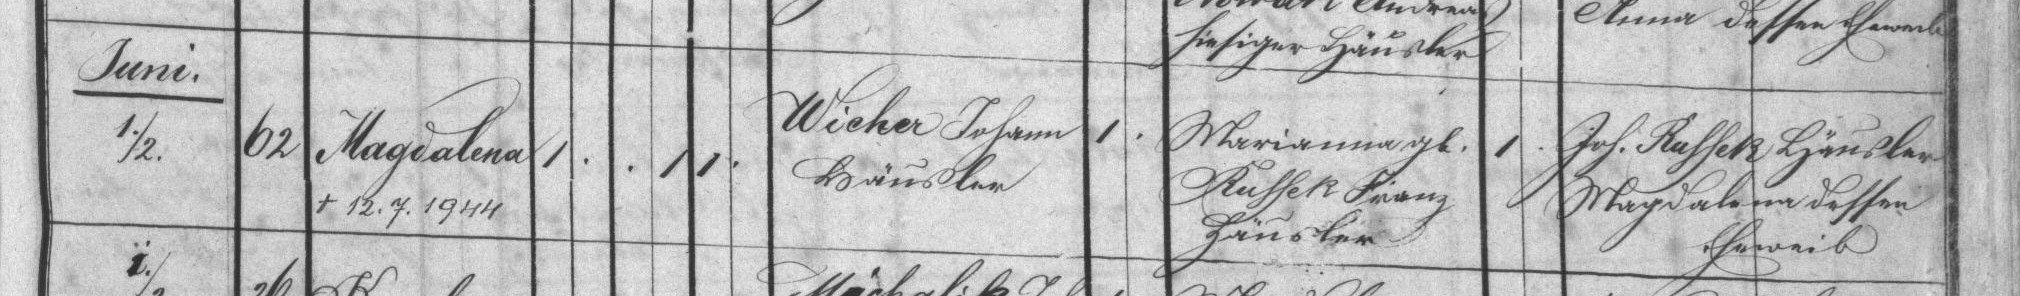 Andreas
hiesiger Häusler
Anna dessen Eheweib
Juni.
1./2.
62
Magdalena
† 12. 7. 1944
1 . . 1 1 .
Wicher Johann
Häusler
1 .
Marianna gb.
Russek Franz
Häusler
1 .
Joh. Russek Häusler
Magdalena dessen
Eheweib